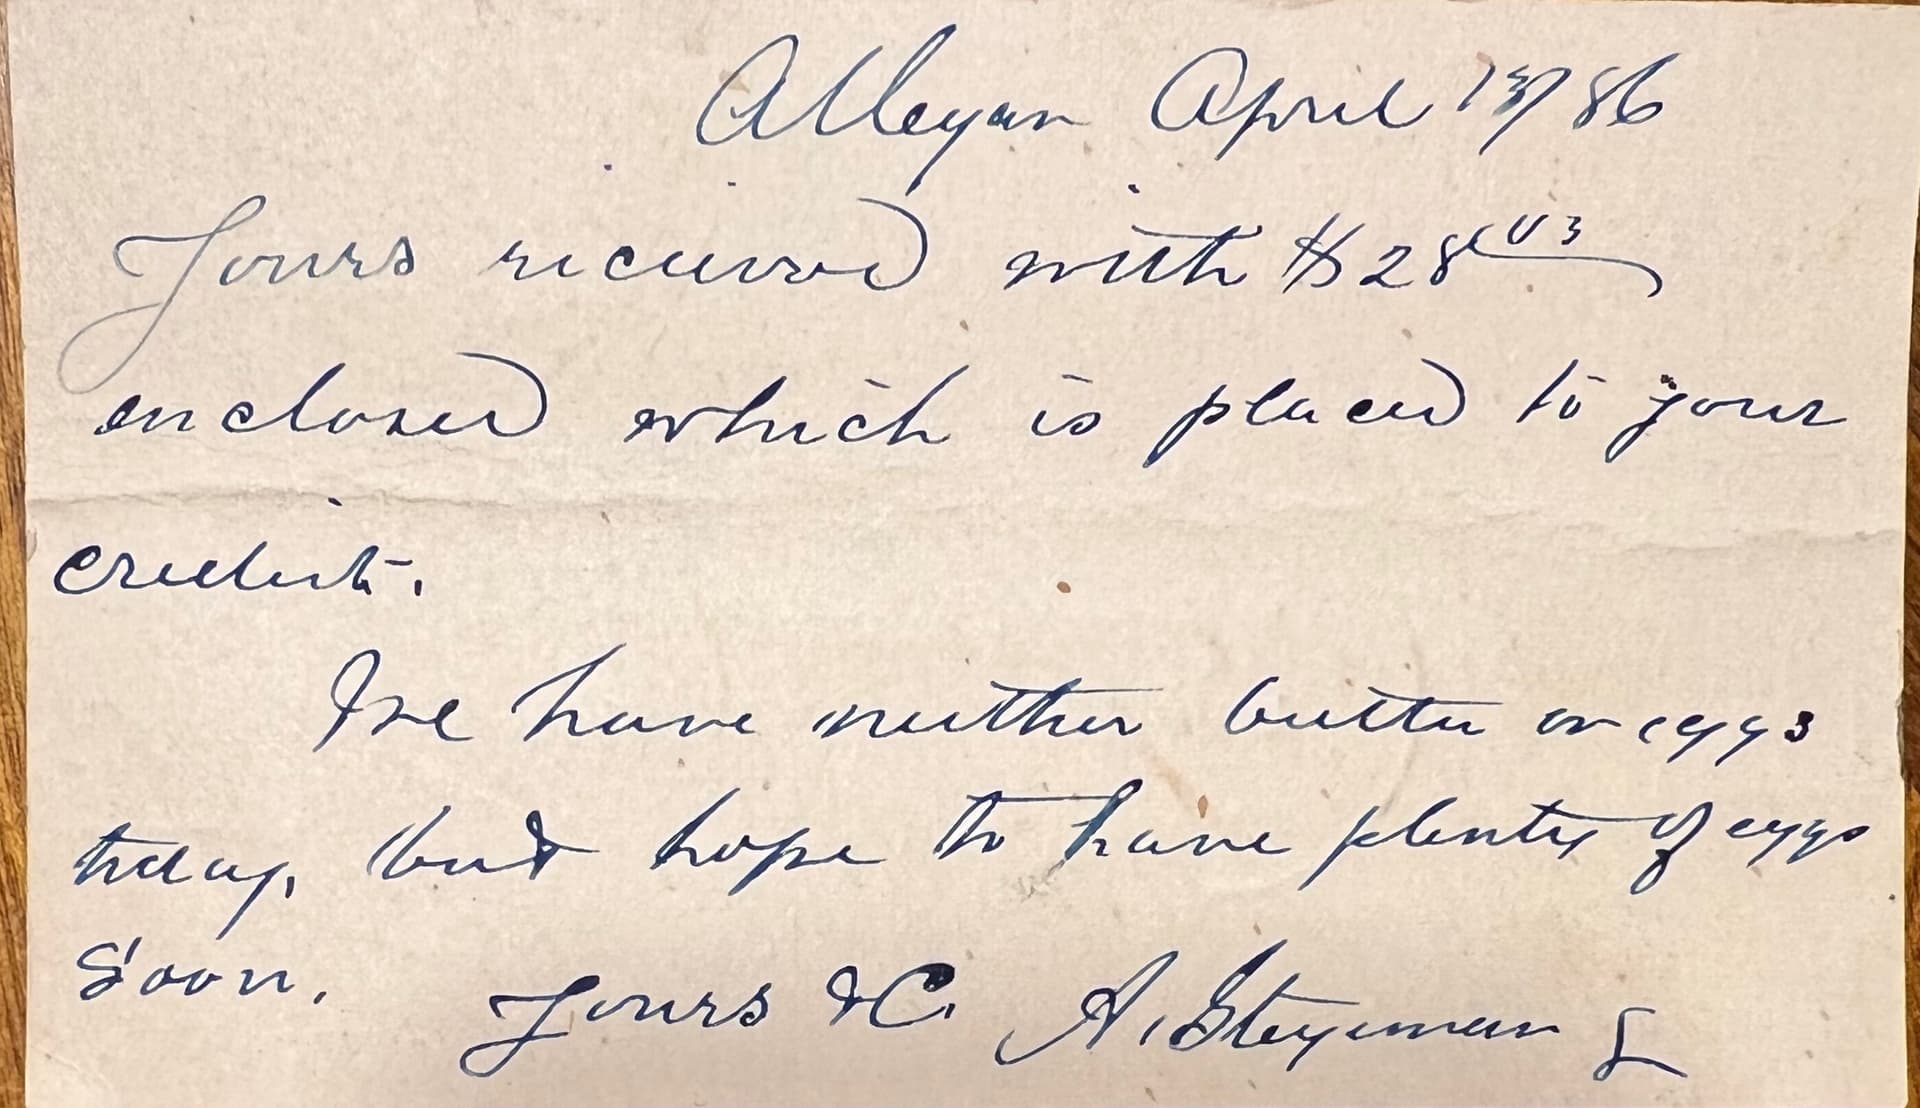 Allegan April 13/86
Yours received with $28 03
enclosed which is placed to your
credit.
We have neither butter or eggs
today, but hope to have plenty of eggs
Soon. Yours &C. A. Stegeman